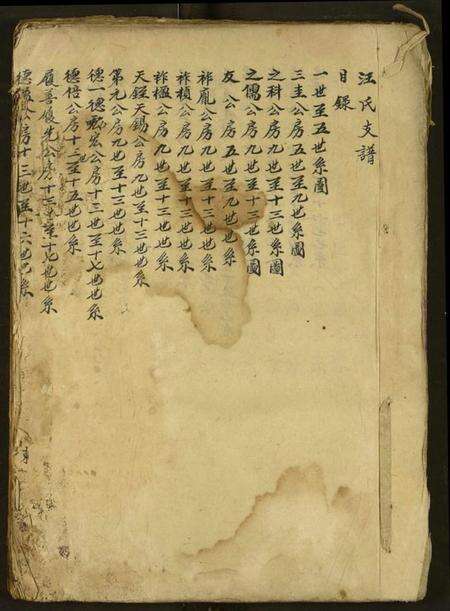 汪氏支譜
目錄
一世至五世系圖
三圭公房五世至九世系圖
之科公房九世至十三世系圖
之儒公房九世至十三世系圖
友公房五世至九世世系
祚龐公房九世至十三世世系
祚楨公房九世至十三世世系
祚楹公房九世至十三世世系
天錫公房九世至十三世世系
第元公房九世至十三世世系
德一德公房十三世至十七世世系
德倍公房十三至十五世世系
履善履先公房十三世至十七世世系
德公房十三世至十六世世系